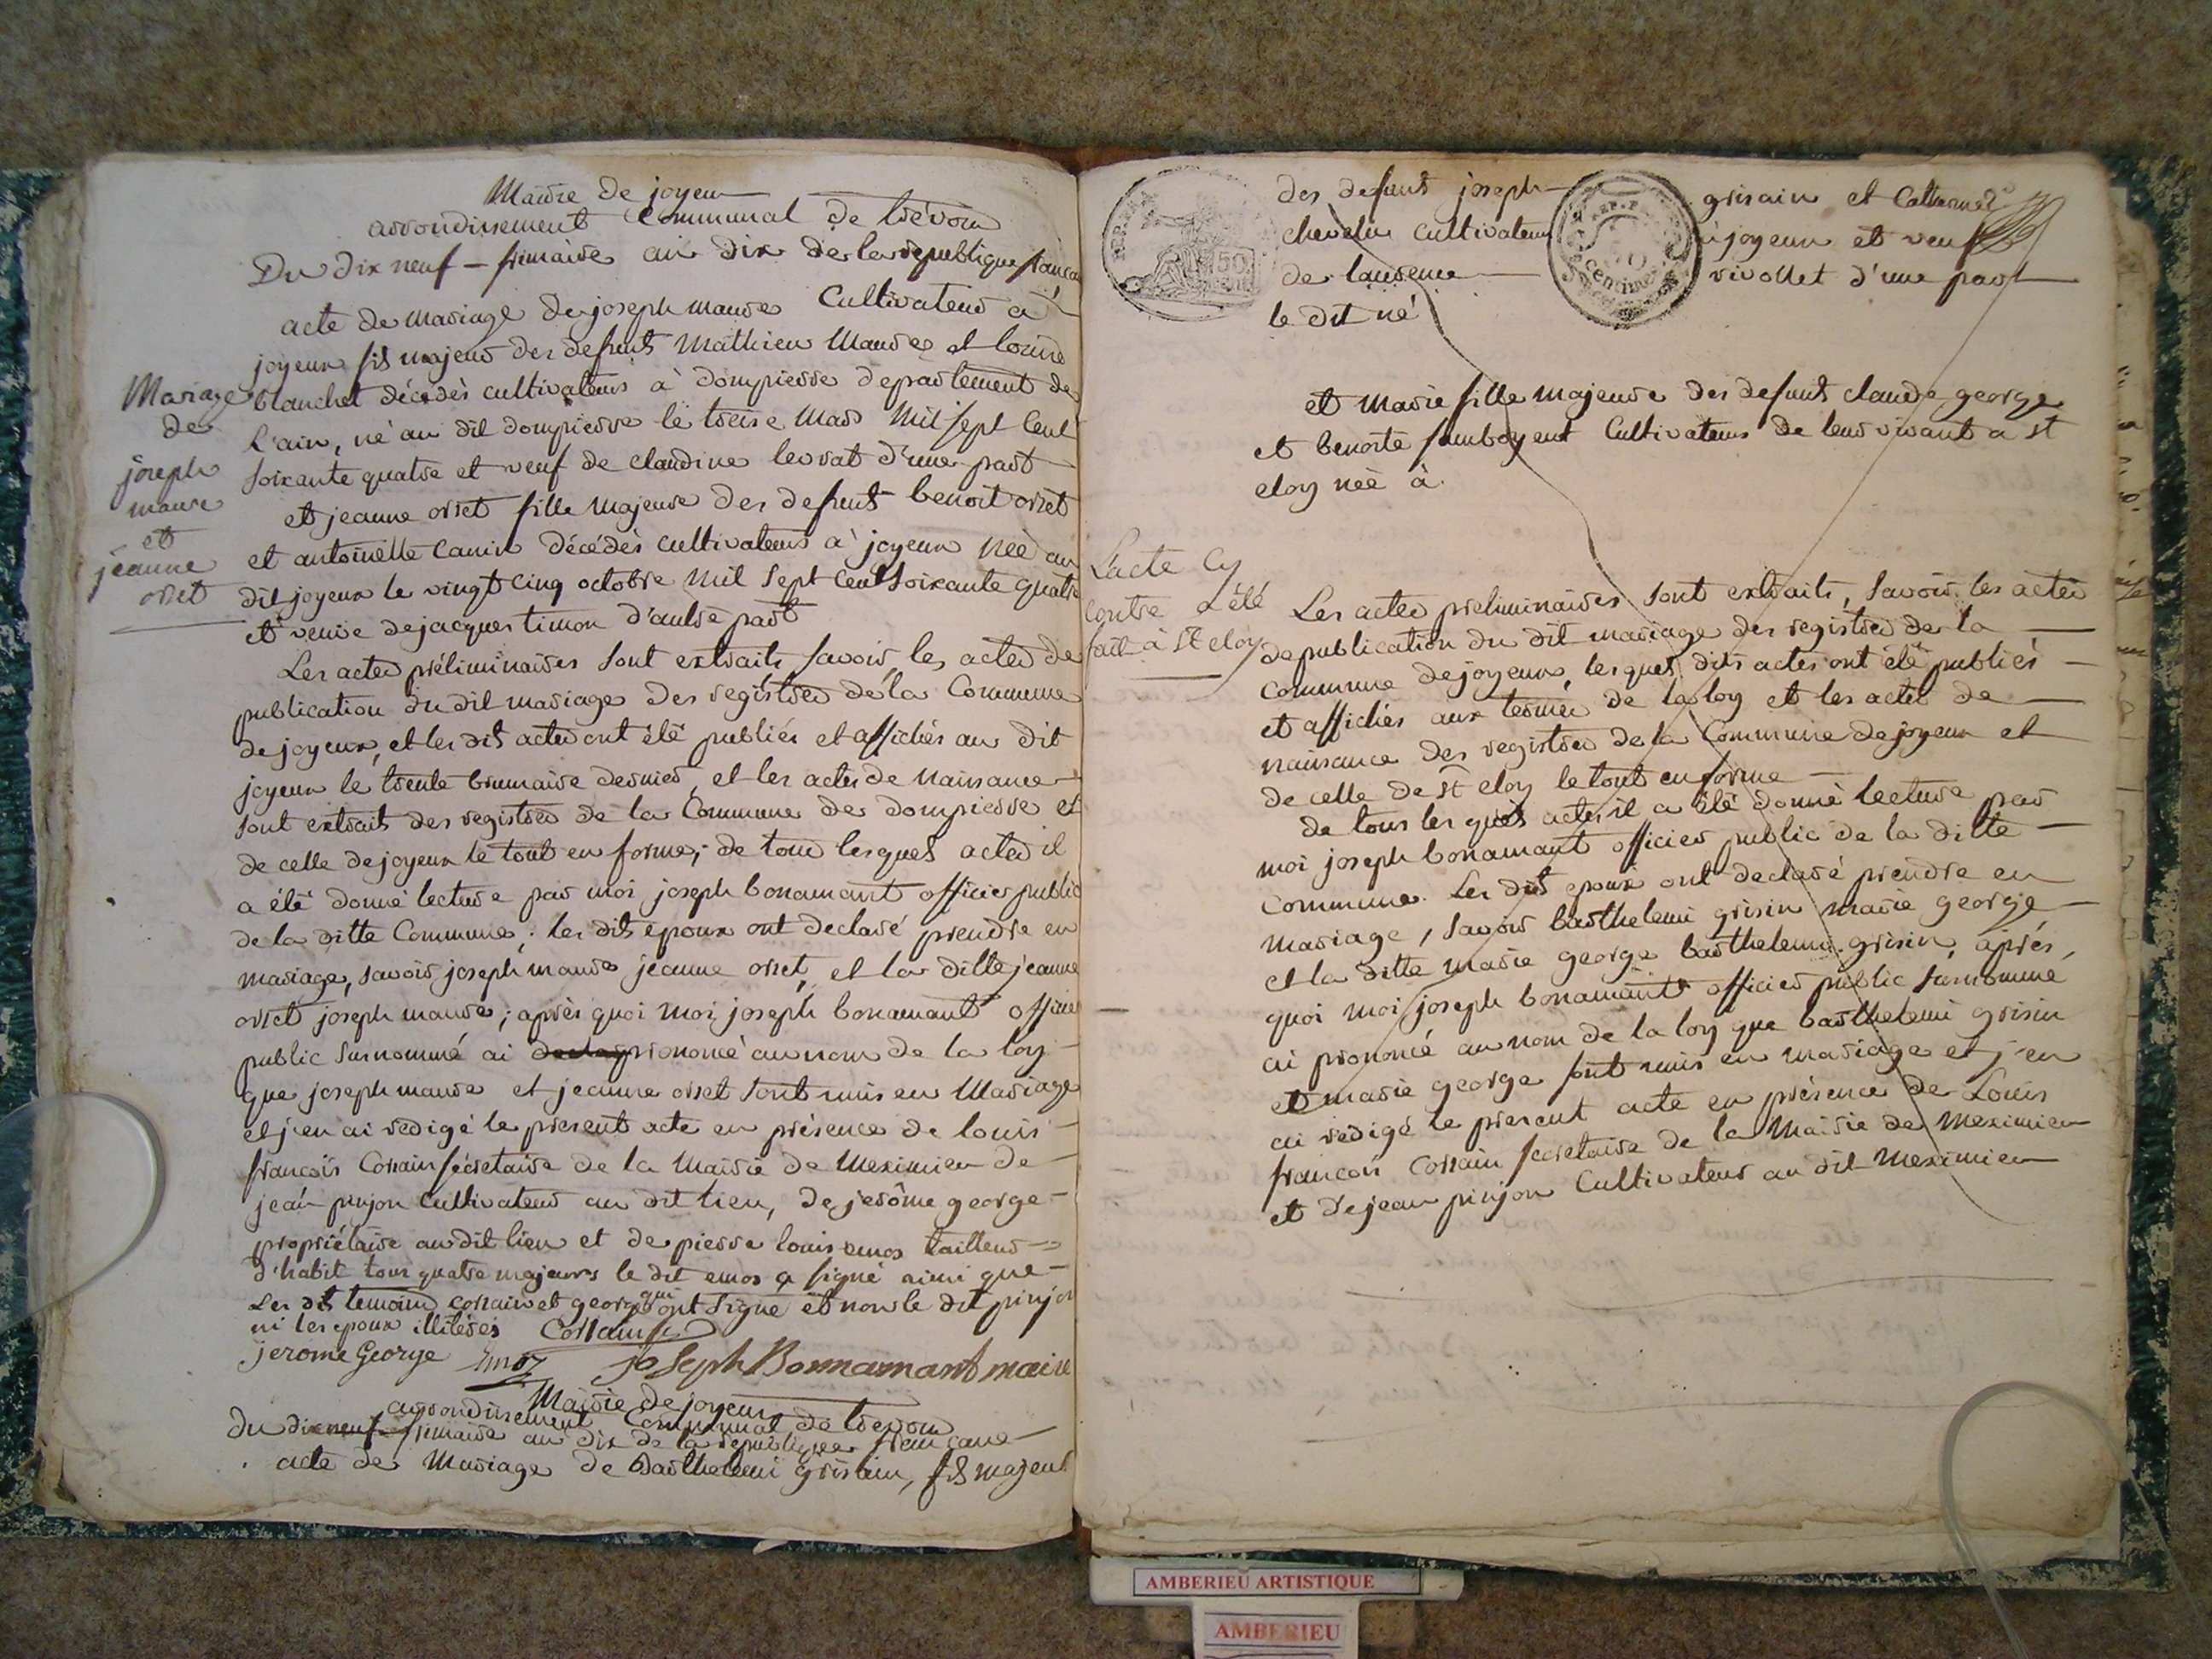 Mairie de joyeux
arrondissement Communal de trévoux
Du dix neuf frimaire an dix de la republique francai
acte de mariage de joseph maure Cultivateur à
joyeux fils majeur des defunts Mathieu Maure et
blanchet décédés cultivateurs à dompierre departement de
L'ain, né au dit dompierre le treise Mars Mil sept Cent
soixante quatre et veuf de claudine levrat d'une part
et jeanne orset fille majeure des defunts benoit orset
et antoinette Canin décédés cultivateurs à joyeux née au
dit joyeux le vingt cinq octobre mil sept cent soixante quatre
et veuve de jacques timon d'autre part
Mariage
de
joseph
maure
et
jeanne
orset
Les actes préliminaires sont extraits savoir, les actes de
publication du dit mariage des registres de la Commune
de joyeux, et les dits actes ont été publiés et affichés au dit
joyeux le trente brumaire dernier, et les actes de naissance
sont extraits des registres de la Commune de dompierre et
de celle de joyeux le tout en forme; de tous lesquels actes il
a été donné lecture par moi joseph bonamant officier public
de la ditte Commune; les dits époux ont declaré prendre en
mariage, savoir joseph maure jeanne orset, et la ditte jeanne
orset joseph maure; après quoi moi joseph bonamant officier
public surnommé ai prononcé au nom de la loy
que joseph maure et jeanne orset sont unis en Mariage
et j'en ai redigé le present acte en présence de louis
francois Corsain sécretaire de la Mairie de Meximieu de
jean pinjon cultivateur au dit lieu, de jerôme george
propriétaire au dit lieu et de pierre louis emoz tailleur
d'habit tous quatre majeurs le dit emoz a signé ainsi que
Les dits temoins corsain et george qui ont signé et non le dit pinjon
ni les epoux illiterés Corsain
jerome George Emoz joseph Bonnamant maire
Mairie de joyeux
arrondissement Communal de trevoux
du dix neuf frimaire an dix de la republique francaise
acte de Mariage de Barthelemi grisain, fils majeur
des defunts joseph grisain et Catherine
chevelu cultivateurs à joyeux et veuf
de laurence vivollet d'une part
le dit né
50
centimes
et Marie fille majeure des defunts claude george
et benoite Cultivateurs de leur vivant a st
eloy née à
L'acte Cy
Contre a été
fait à st eloy
Les actes preliminaires sont extraits, savoir les actes
de publication du dit mariage des registres de la
Commune de joyeux, lesquels dits actes ont été publiés
et affichés aux termes de la loy et les actes de
naissance des registres de la Commune de joyeux et
de celle de st eloy le tout en forme
de tous les quels actes il a été donné lecture par
moi joseph bonamant officier public de la ditte
Commune. Les dits epoux ont declaré prendre en
mariage, savoir barthelemi grisin marie george
et la ditte marie george barthelemi grisin, après,
quoi moi joseph bonamant officier public surnommé
ai prononcé au nom de la loy que barthelemi grisin
et marie george sont unis en mariage et j'en
ai redigé le present acte en présence de Louis
francois Corsain secretaire de la Mairie de Meximieu
et de jean pinjon Cultivateur au dit Meximieu
AMBERIEU ARTISTIQUE
AMBERIEU